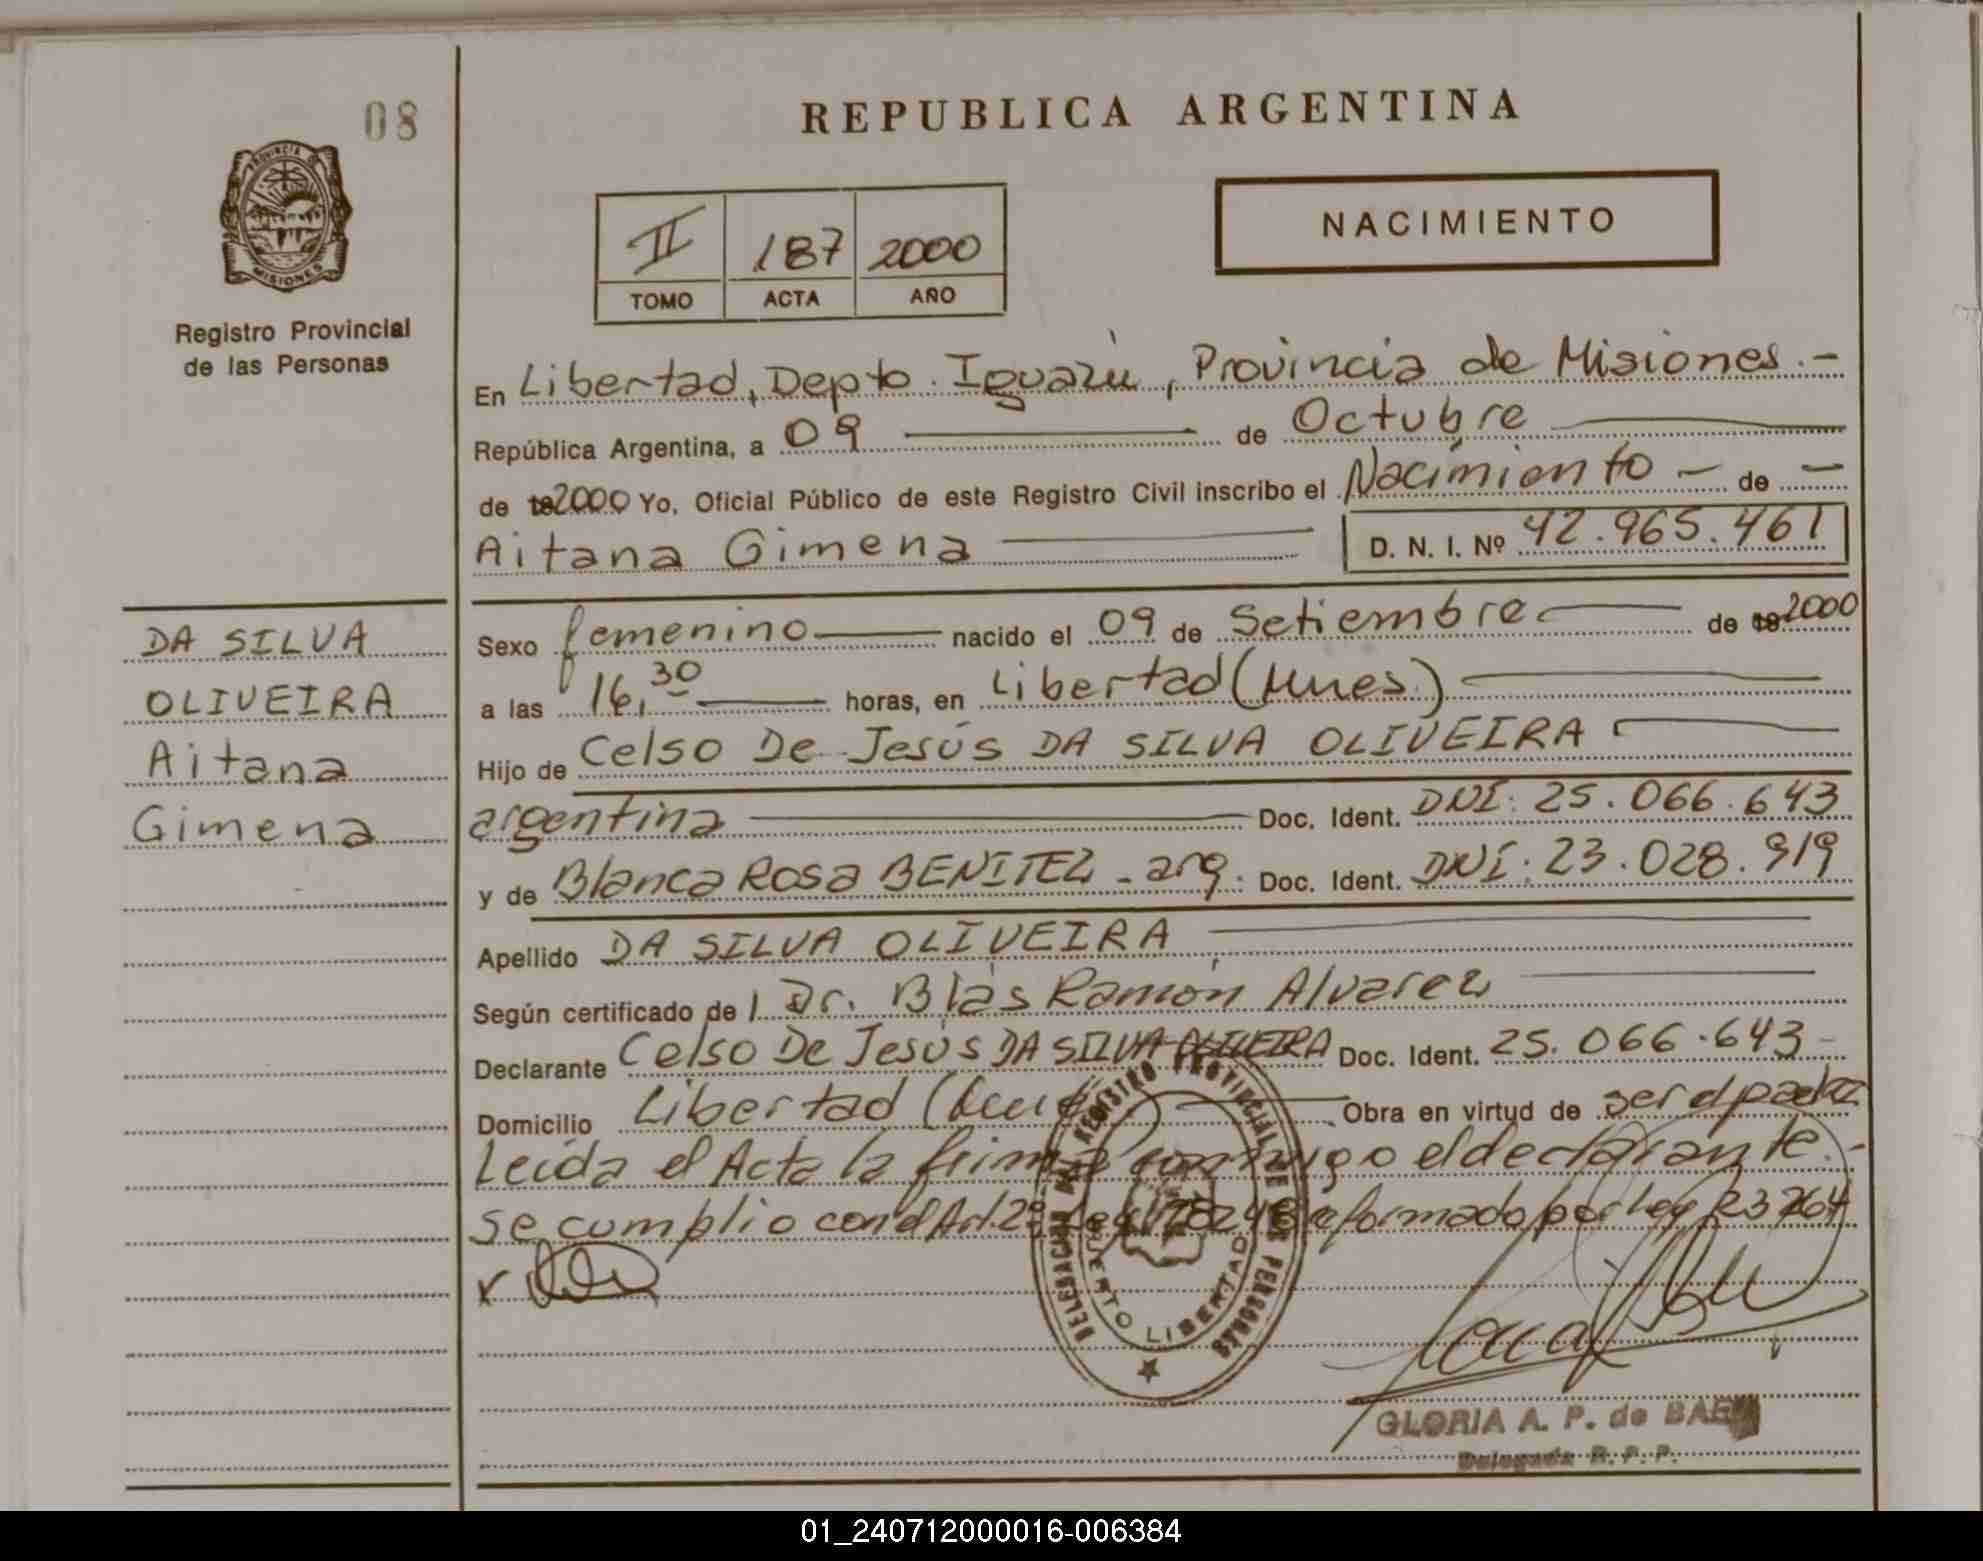 08
REPUBLICA ARGENTINA
PROVINCIA DE
MISIONES
NACIMIENTO
II 187 2000
TOMO ACTA AÑO
Registro Provincial
de las Personas
En Libertad, Depto. Iguazú, Provincia de Misiones.-
República Argentina, a 09 de Octubre
de 2000 Yo, Oficial Público de este Registro Civil inscribo el Nacimiento - de -
Aitana Gimena
D. N. I. Nº 42.965.461
DA SILVA
OLIVEIRA
Aitana
Gimena
Sexo femenino nacido el 09 de Setiembre de 2000
a las 16,30 horas, en Libertad (Mnes.)
Hijo de Celso De Jesús DA SILVA OLIVEIRA
argentina Doc. Ident. DNI: 25.066.643
y de Blanca Rosa BENITEZ - arg. Doc. Ident. DNI: 23.028.919
Apellido DA SILVA OLIVEIRA
Según certificado de l Dr. Blás Ramón Alvarez
Declarante Celso De Jesús DA SILVA OLIVEIRA Doc. Ident. 25.066.643-
Domicilio Libertad Obra en virtud de ser el padre
Leída el Acta la firma conmigo el declarante.-
se cumplio con el Art. 2º Ley 18248 Reformado por Ley 23264
DELEGACION REGISTRO PROVINCIAL DE LAS PERSONAS
PUERTO LIBERTAD
GLORIA A. P. de BAEZ
Delegada R. P. P.
01_240712000016-006384